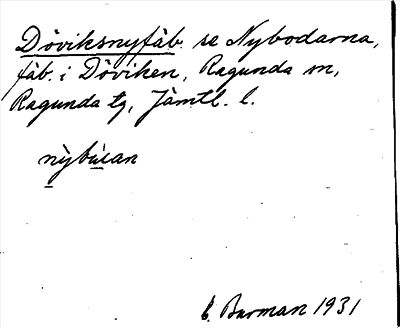 Döviksnyfäb. se Nybodarna,
fäb. i Döviken, Ragunda sn,
Ragunda tg, Jämtl. l.
nỳbùan
Burman 1931